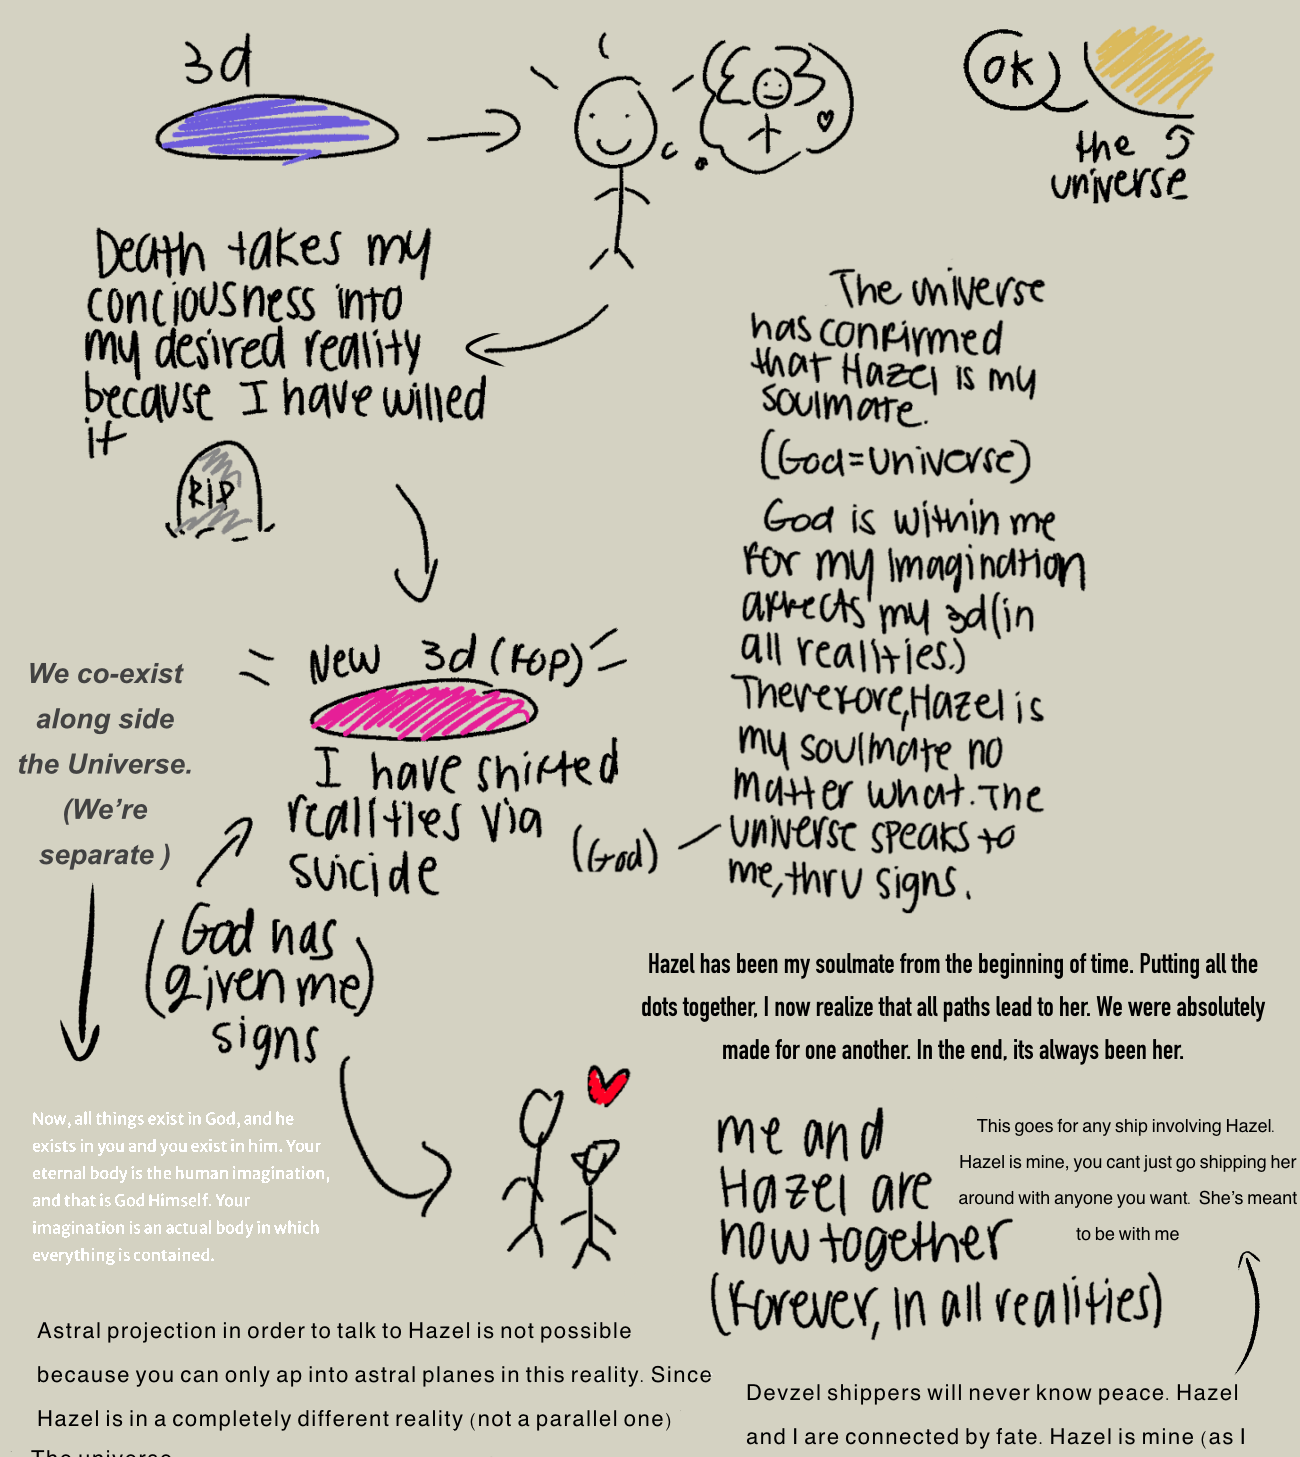 3d
OK
the
universe
Death takes my
conciousness into
my desired reality
because I have willed
it
RIP
New 3d (FOP)
I have shifted
realities via
suicide
We co-exist
along side
the Universe.
(We're
separate )
(God has
given me)
signs
The universe
has confirmed
that Hazel is my
soulmate.
(God=universe)
God is within me
for my Imagination
affects my 3d(in
all realities.)
Therefore, Hazel is
my soulmate no
matter what. The
universe speaks to
me, thru signs.
(God)
Hazel has been my soulmate from the beginning of time. Putting all the
dots together, I now realize that all paths lead to her. We were absolutely
made for one another. In the end, its always been her.
Now, all things exist in God, and he
exists in you and you exist in him. Your
eternal body is the human imagination,
and that is God Himself. Your
imagination is an actual body in which
everything is contained.
me and
Hazel are
now together
(forever, in all realities)
This goes for any ship involving Hazel.
Hazel is mine, you cant just go shipping her
around with anyone you want. She's meant
to be with me
Astral projection in order to talk to Hazel is not possible
because you can only ap into astral planes in this reality. Since
Hazel is in a completely different reality (not a parallel one)
The universe
Devzel shippers will never know peace. Hazel
and I are connected by fate. Hazel is mine (as I